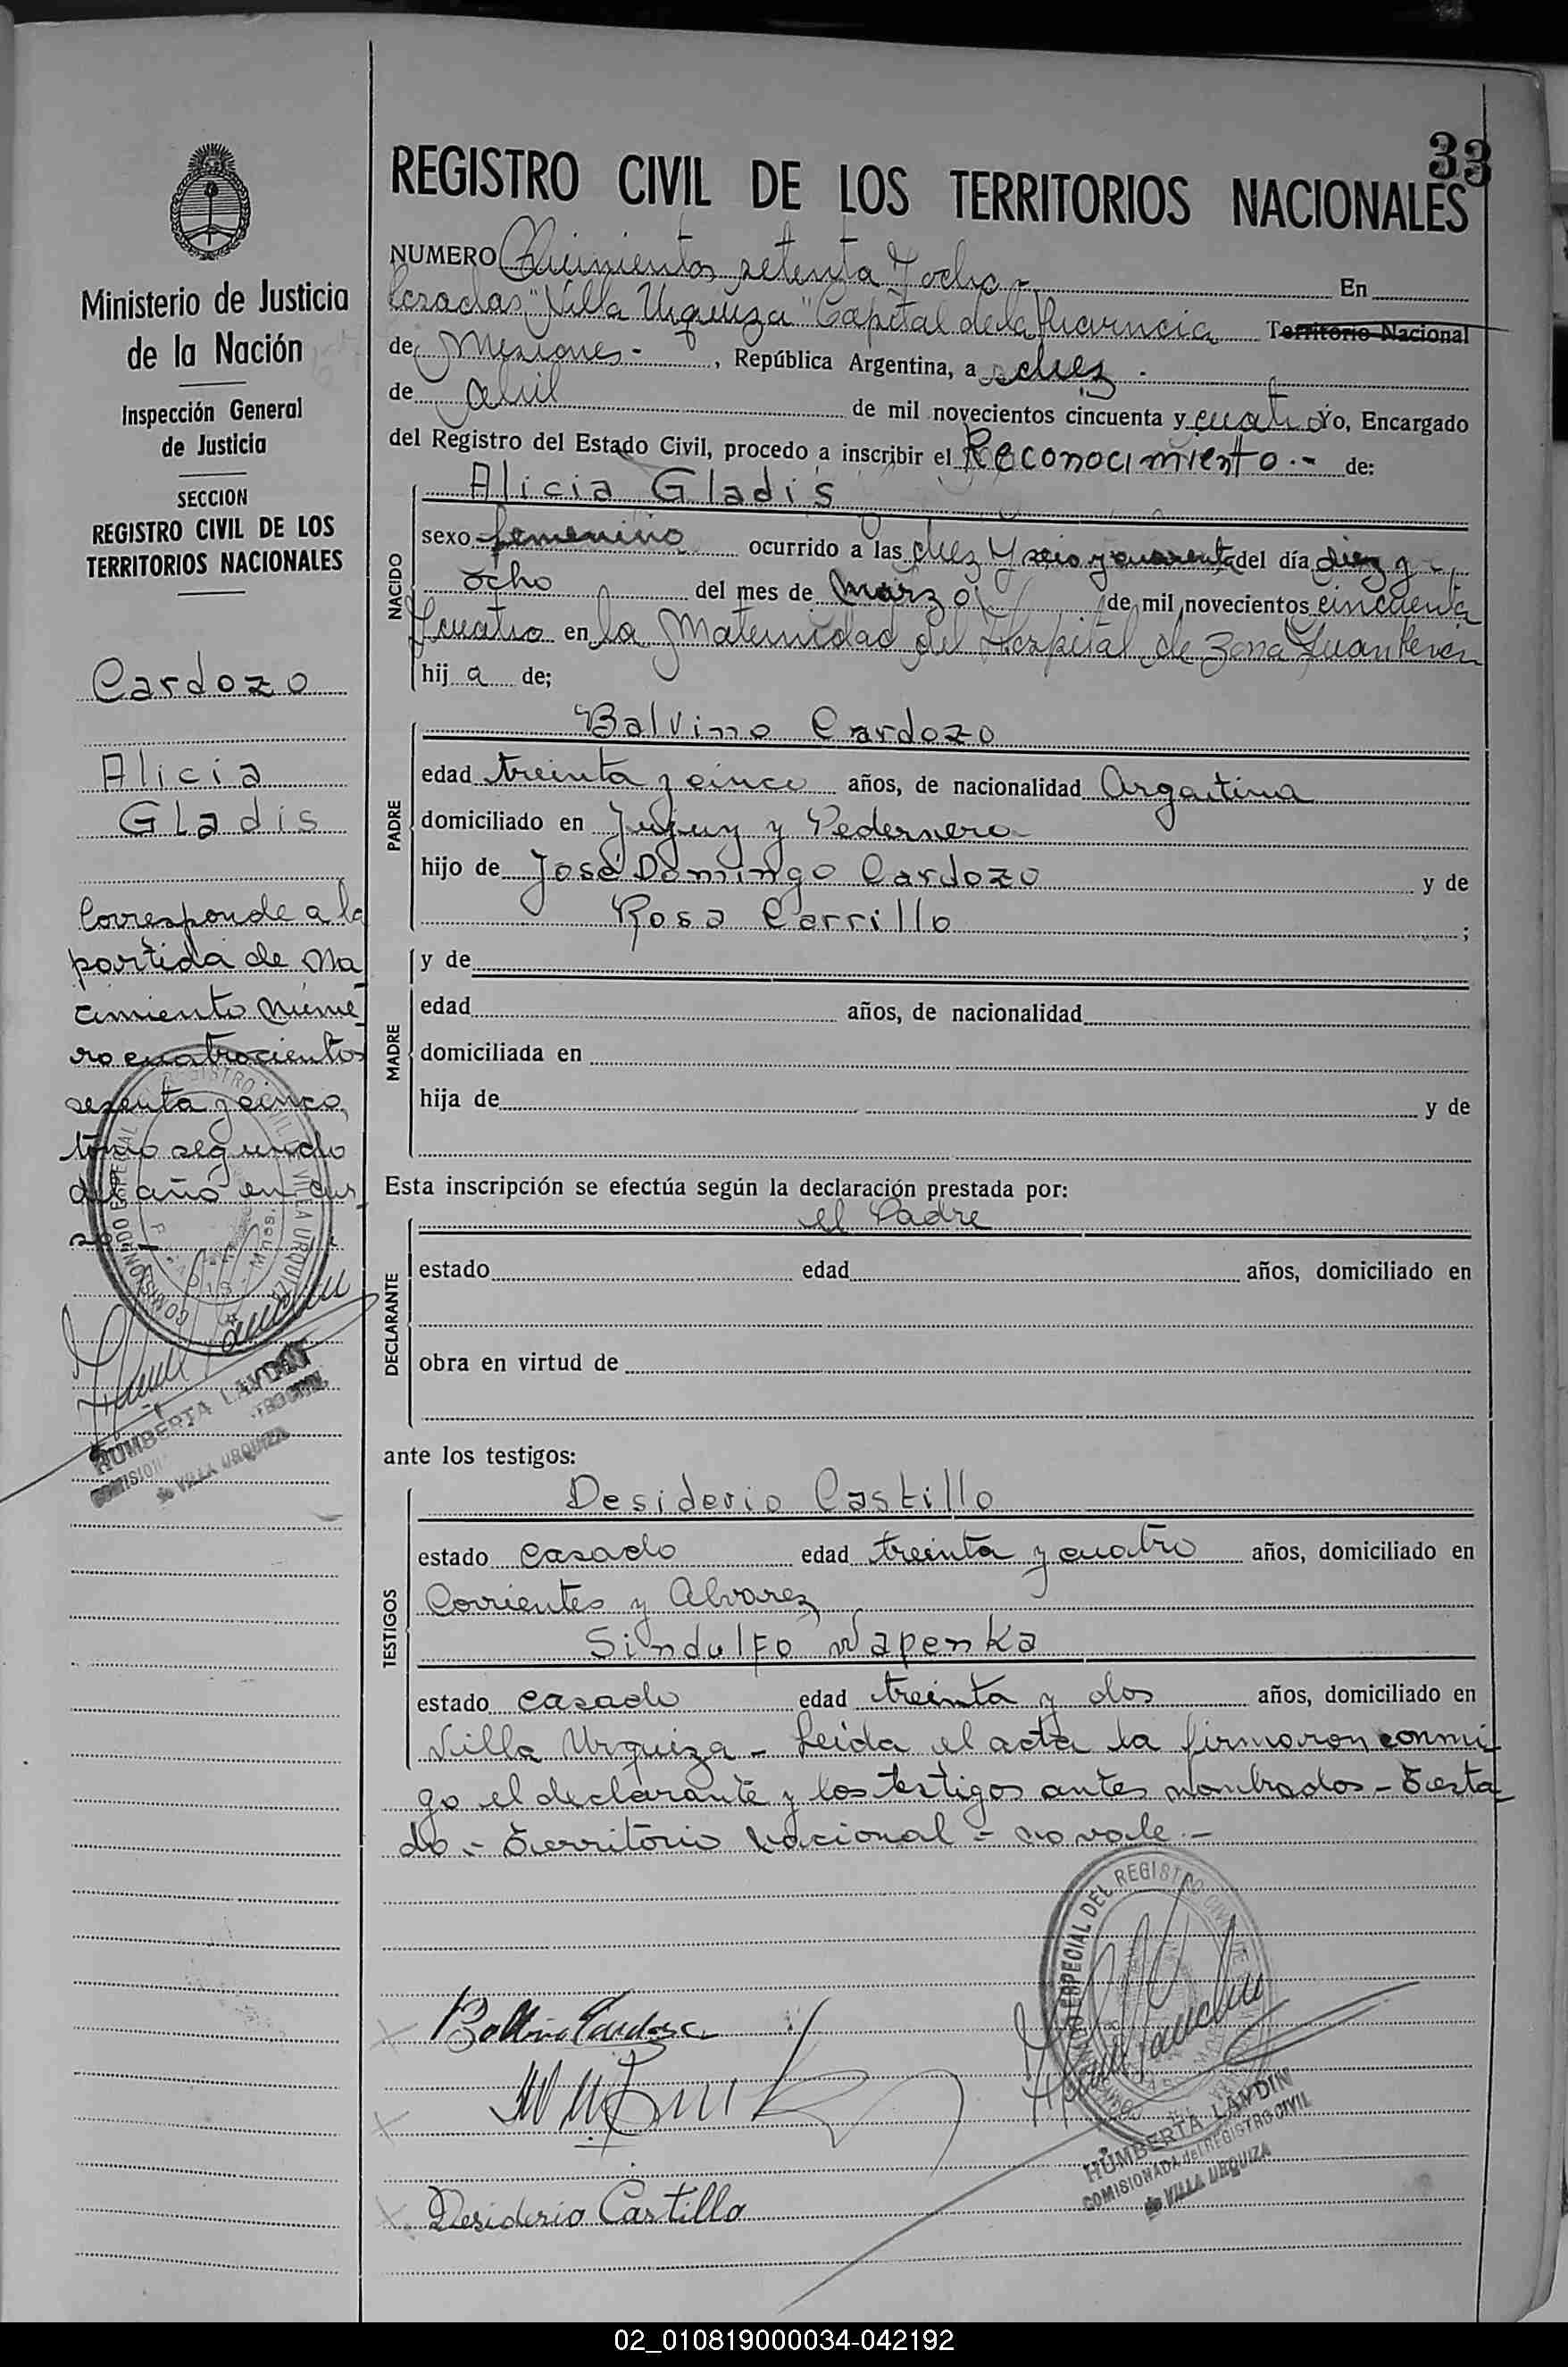 33
REGISTRO CIVIL DE LOS TERRITORIOS NACIONALES
NUMERO Quinientos setenta y ocho - En
Posadas "Villa Urquiza" Capital de la Provincia Territorio Nacional
de Misiones - , República Argentina, a diez -
de abril de mil novecientos cincuenta y cuatro Yo, Encargado
del Registro del Estado Civil, procedo a inscribir el Reconocimiento.- de:
NACIDO
Alicia Gladis
sexo femenino ocurrido a las diez y seis y cuarenta del día diez y
ocho del mes de marzo de mil novecientos cincuenta
y cuatro en la Maternidad del Hospital de Zona Juan Perón
hij a de;
PADRE
Balvino Cardozo
edad treinta y cinco años, de nacionalidad Argentina
domiciliado en Jujuy y Pedernera
hijo de José Domingo Cardozo y de
Rosa Carrillo ;
MADRE
y de
edad años, de nacionalidad
domiciliada en
hija de y de
Esta inscripción se efectúa según la declaración prestada por:
el Padre
DECLARANTE
estado edad años, domiciliado en
obra en virtud de
ante los testigos:
TESTIGOS
Desiderio Castillo
estado casado edad treinta y cuatro años, domiciliado en
Corrientes y Alvarez
Sindulfo Wapenka
estado casado edad treinta y dos años, domiciliado en
Villa Urquiza - Leída el acta la firmaron conmi-
go el declarante y los testigos antes nombrados - Testa
do - Territorio Nacional - no vale.-
Desiderio Castillo
HUMBERTA LAVDIN
COMISIONADA del REGISTRO CIVIL
de VILLA URQUIZA
Ministerio de Justicia
de la Nación
Inspección General
de Justicia
SECCION
REGISTRO CIVIL DE LOS
TERRITORIOS NACIONALES
Cardozo
Alicia
Gladis
Corresponde a la
partida de Na
cimiento núme-
ro cuatrocientos
sesenta y cinco,
tomo segundo
del año en cur
so -
HUMBERTA
de VILLA URQUIZA
02_010819000034-042192